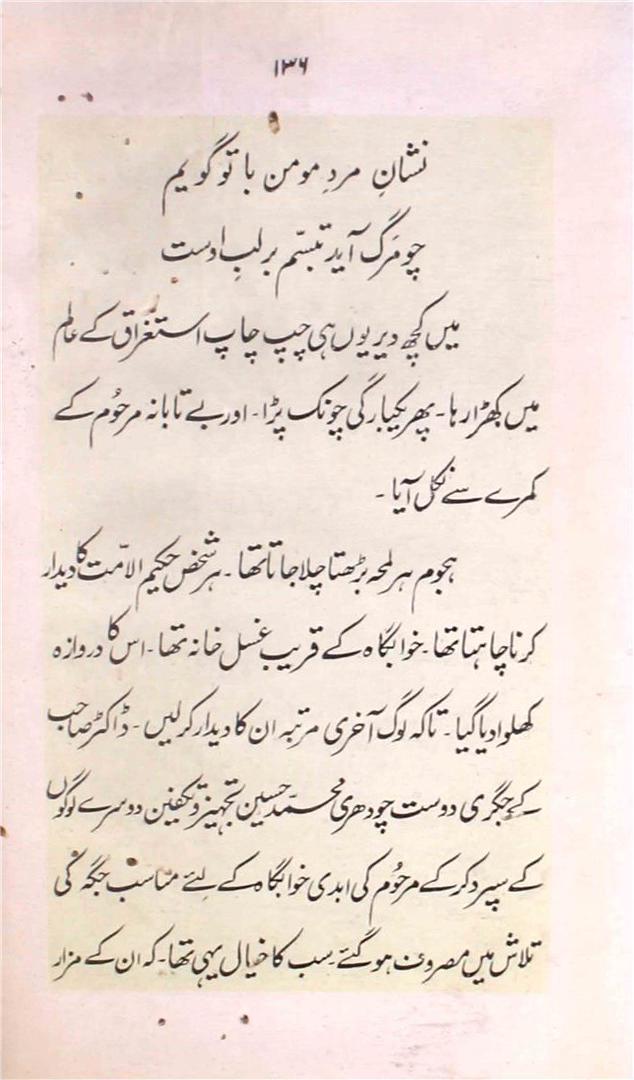 ۱۳۶
نشانِ مردِ مومن با تو گویم
چو مرگ آید تبسّم بر لبِ اوست
میں کچھ دیر یوں ہی چپ چاپ استغراق کے عالم
میں کھڑا رہا۔ پھر یکبارگی چونک پڑا۔ اور بے تابانہ مرحُوم کے
کمرے سے نکل آیا۔
ہجوم ہر لمحہ بڑھتا چلا جاتا تھا۔ ہر شخص حکیم الامّت کا دیدار
کرنا چاہتا تھا۔ خوابگاہ کے قریب غسل خانہ تھا۔ اس کا دروازہ
کھلوا دیا گیا۔ تاکہ لوگ آخری مرتبہ ان کا دیدار کرلیں۔ ڈاکٹر صاحب
کے جگری دوست چودھری محمّد حسین تجہیز و تکفین دوسرے لوگوں
کے سپرد کرکے مرحُوم کی ابدی خوابگاہ کے لِئے مناسب جگہ کی
تلاش میں مصروف ہوگئے۔ سب کا خیال یہی تھا۔ کہ ان کے مزار